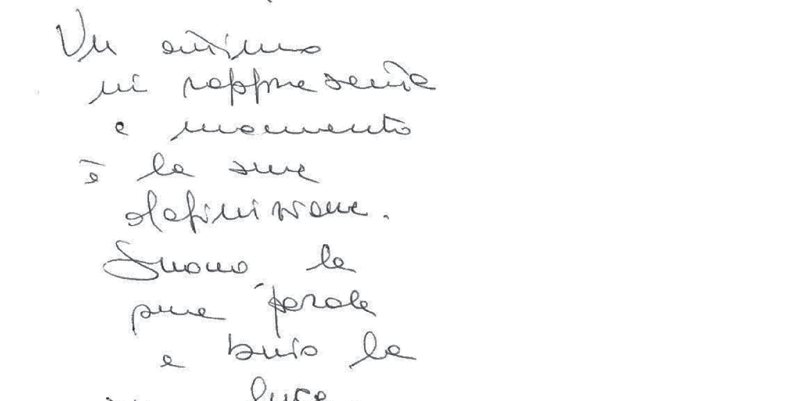 Un attimo
mi rappresenta
e momento
è la sua
definizione.
Suono la
sua parola
e buio la
sua luce